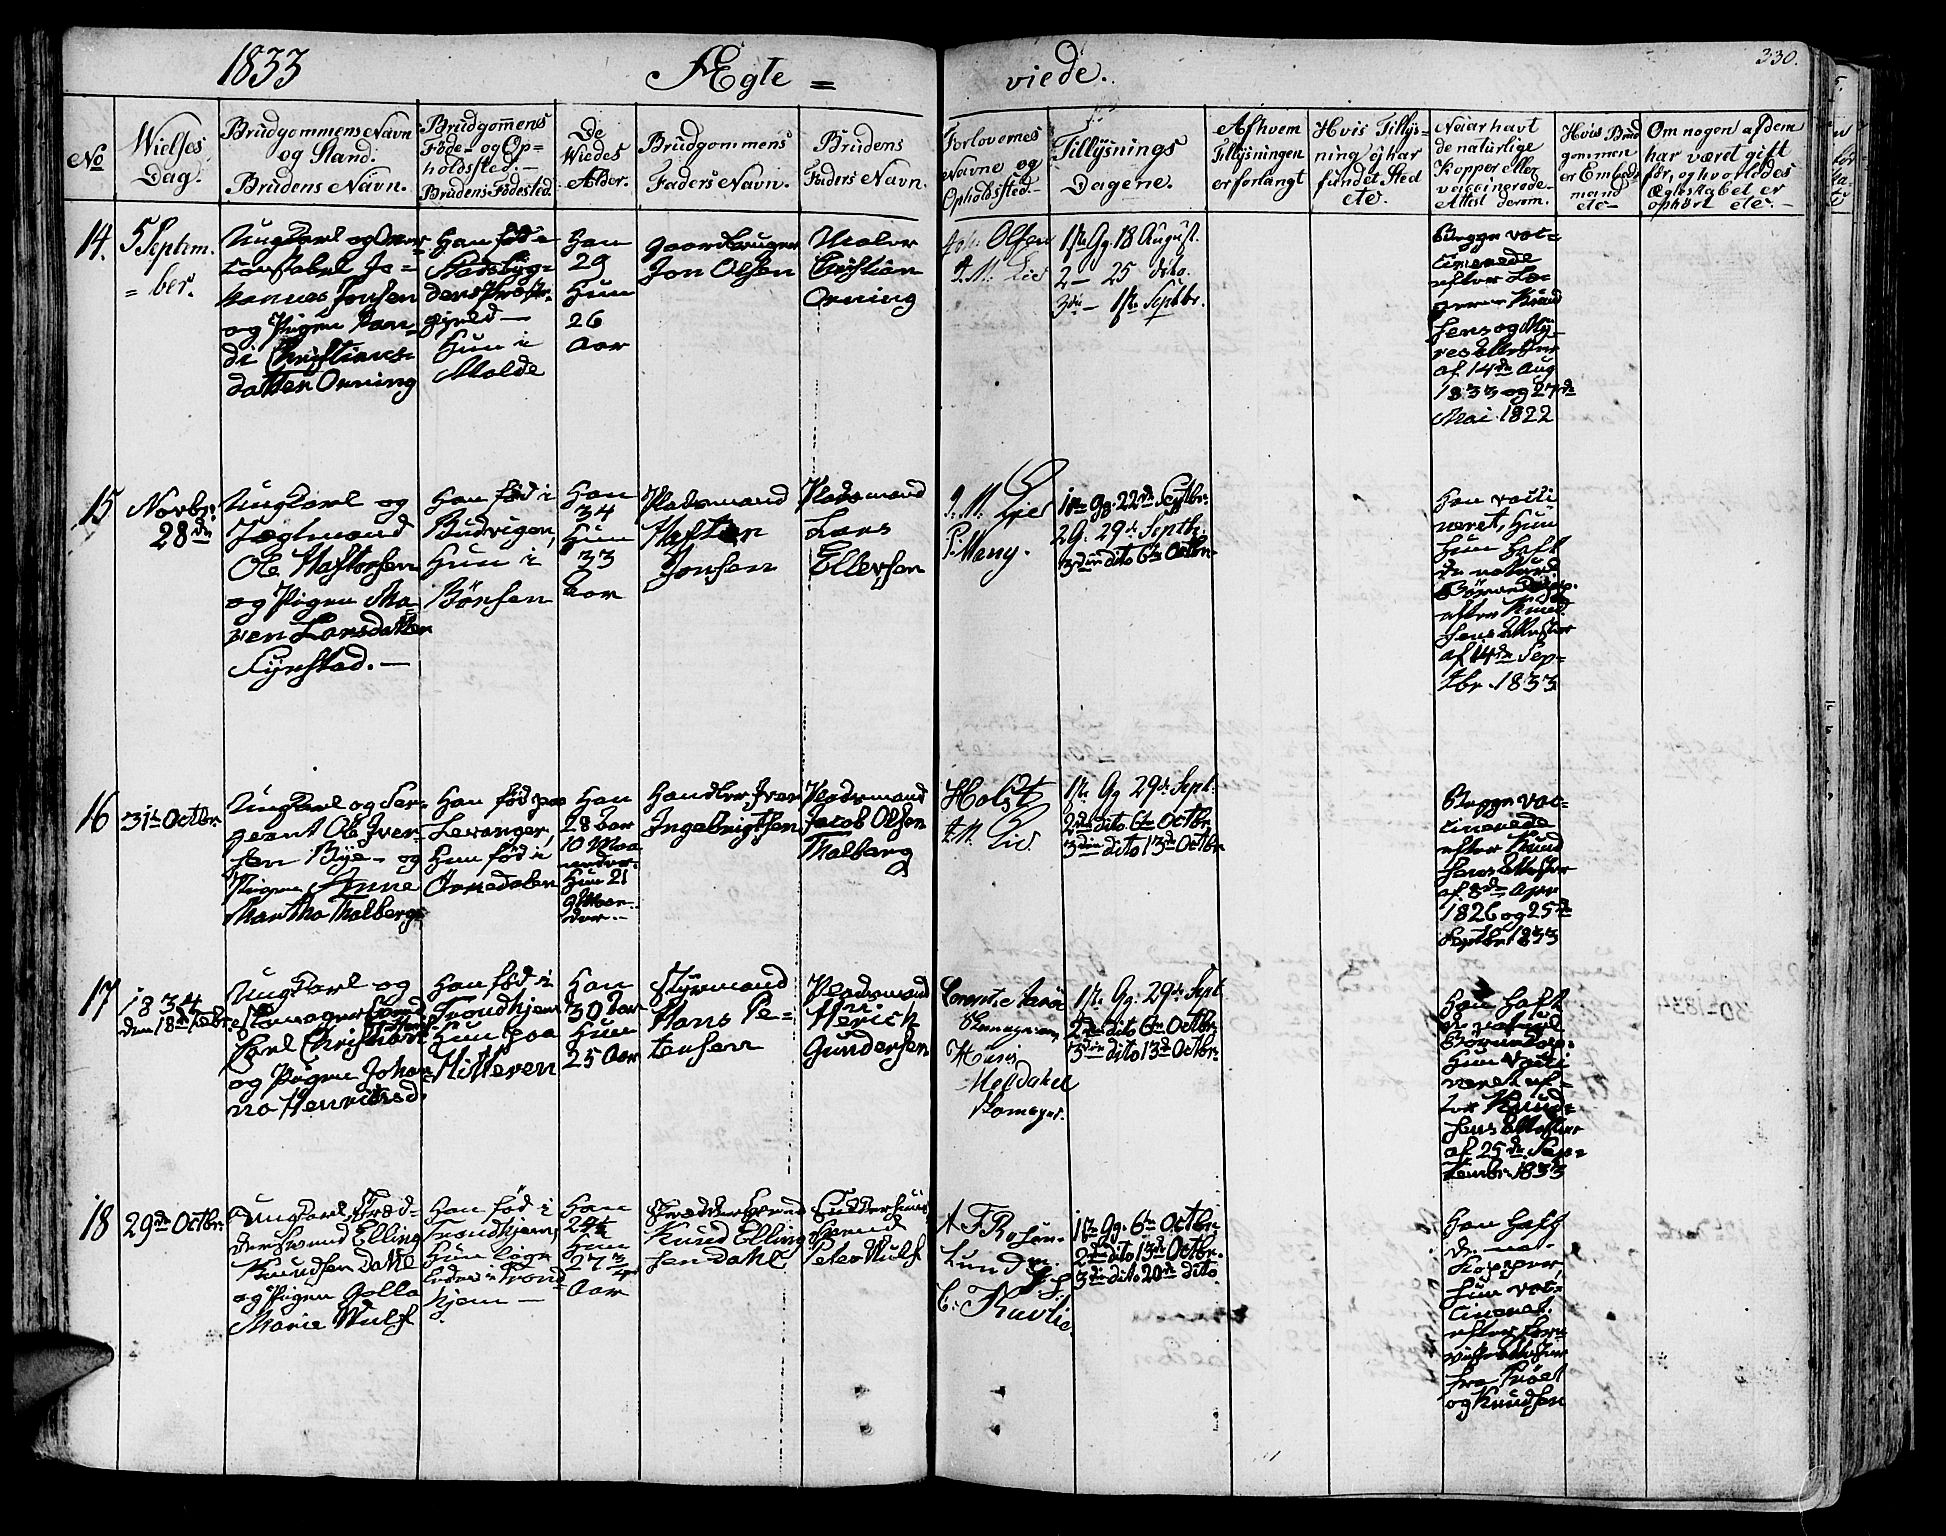 1833
Ægte =
viede.
330.
No
Vielses
Dag.
Brudgommens Navn
og Stand.
Brudens Navn.
Brudgom̅ens
Føde- og Op=
holdssted.
Brudens Fødested.
De
Viedes
Alder.
Brudgommens
Faders Navn.
Brudens
Faders Navn.
Forlovernes
Navne og
Opholdssted.
Tillysnings
Dagene.
Af hvem
Tillysningen
er forlangt
Hvis Tillys=
ning ej har
fundet Sted
etc.
Naar havt
de naturlige
Kopper eller
vaccinerede
Attest derom.
Hvis Brud
gommen
er Embeds
mand
etc
Om nogen af dem
har været gift
før, og hvorledes
Ægteskabet er
ophørt etc.
14.
5 Septem=
ber.
Ungkarl og
Constabel Jo=
hannes Jonsen
og Pigen Van=
di Christians=
datter Orning
Han fød i
Stadsbyg=
dens Præste
gjeld
Hun i
Molde
Han
29
Hun
26
Aar
Gaardbruger
Jon Olsen
Maler
Christian
Orning
Joh: Olsen
I. M. Lie
1ste Gg. 18 August.
2 — 25 dito.
3die — 1ste Septbr.
Begge vac=
cinerede
efter Læ=
gerne Knud
sens og My
res Attester
af 14de Aug
1833 og 27de
Mai 1822
15
Novbr.
28de
Ungkarl og
Jægtmand
Ole Haftorsen
og Pigen Ma=
ren Larsdatter
Fyrstad.
Han fød i
Budvigen,
Hun i
Børsen
Han
34
Hun
33
Aar
Pladsmand
Haften
Jonsen
Pladsmand
Lars
Ellefsen
I. M. Lie
P. Meny.
1ste Gg. 22de Septbr.
2 G. 29de Septb.
3die dito 6te Octbr.
Han vacci
neret, Hun
Hun haft
de naturl
Børnekop.
efter Knud
sens Attester
af 14de Sep=
tbr. 1833
16
31te Octbr
Ungkarl og Ser=
geant Ole Iver
sen Bye og
Pigen Anne
Martha Thalberg
Han fød paa
Levanger,
Hun fød i
Ørkedalen
Han
28 Aar
10 Maa
neder
Hun 21
9 Maane
der.
Handler Iver
Ingebrigtsen
Pladsmand
Jacob Olsen
Thalberg
Holst
I. M. Lie
1ste Gg 29de Sept.
2de dito 6te Octbr
3die dito 13de Octbr
Begge vac=
cinerede
efter Knud
sens Attester
af 8de Apr
1826 og 25de
Septbr 1833
17
1834
den 18de Febr
Ungkarl og
Skomager Svend
Carl Christian
og Pigen Johan=
na Henrichsd.
Han fød i
Trondhjem
Hun paa
Hitteren
Han
30 Aar
Hun
25 Aar
Styrmand
Hans Pe=
tersen
Pladsmand
Henrich
Gundersen
Skomager
Meldahl
Skomager.
1ste Gg. 29de Sept
2de dito 6te Octbr.
3die dito 13de Octbr.
Han haft
de naturl
Børnekop.
Hun vacci
neret ef=
ter Knud=
sens Attester
af 25de Sep=
tembr. 1833
18
29de Octbr.
Ungkarl, Skræd=
dersvend Elling
Knudsen Dahl
og Pigen Golla
Marie Wulf
Han fød i
Trondhjem,
Hun
i Trond
hjem
Han
24
Hun
27 3/4
Aar
Skræddersvend
Knud Elling
sen Dahl
Svend
Peter Wulf
A F Rosen=
lund
C. Kavlie
1ste Gg. 6te Octbr
2de dito 13de Octbr.
3die dito 20de dito
Han haft
de nat.
Kopper
Hun vac=
cineret.
efter
Attester
fra
og Knudsen